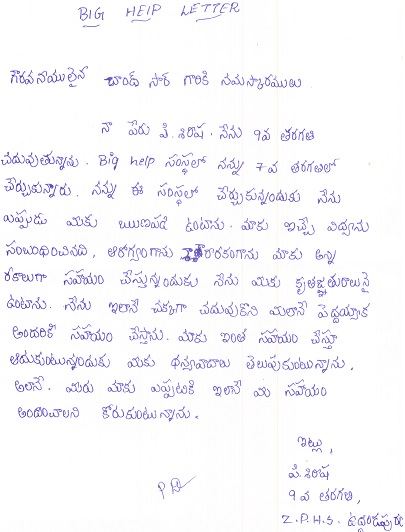 BIG HELP LETTER
గౌరవనాయులైన చాంద్ సార్ గారికి నమస్కారములు
నా పేరు పి. శిరీష. నేను 9వ తరగతి
చదువుతున్నాను. Big help సంస్థలో నన్ను 7వ తరగతిలో
చేర్చుకున్నారు. నన్ను ఈ సంస్థలో చేర్చుకున్నందుకు నేను
ఎప్పుడు మీకు ఋణపడి ఉంటాను. మాకు ఇచ్చే విద్యను
సంబంధించినవి, ఆరోగ్యంగాను మాకు అన్ని
రకాలుగా సహాయం చేస్తున్నందుకు నేను మీకు కృతజ్ఞతురాలునై
ఉంటాను. నేను ఇలానే చక్కగా చదువుకొని మీలానే పెద్దయ్యాక
అందరికి సహాయం చేస్తాను. మాకు ఇంత సహాయం చేస్తూ
ఆదుకుంటున్నందుకు మీకు ధన్యవాదాలు తెలుపుకుంటున్నాను.
అలానే. మీరు మాకు ఎప్పటికి ఇలానే మీ సహాయం
అందించాలని కోరుకుంటున్నాను.
ఇట్లు,
పి. శిరీష
9వ తరగతి,
Z.P.H.S.